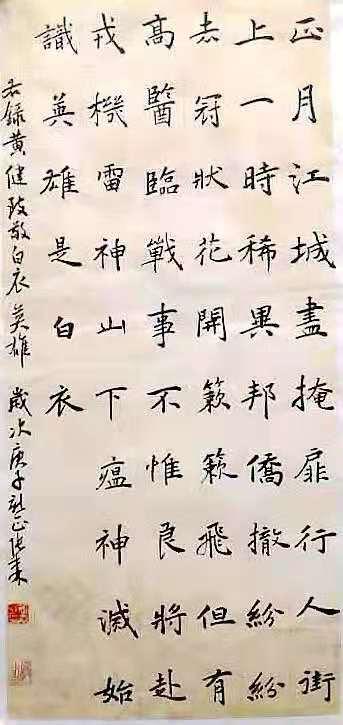 正月江城盡掩扉行人街
上一時稀異邦僑撤紛紛
去冠狀花開簌簌飛但有
高醫臨戰事不惟良將赴
戎機雷神山下瘟神滅始
識英雄是白衣
右錄黄健致敬白衣英雄 歲次庚子